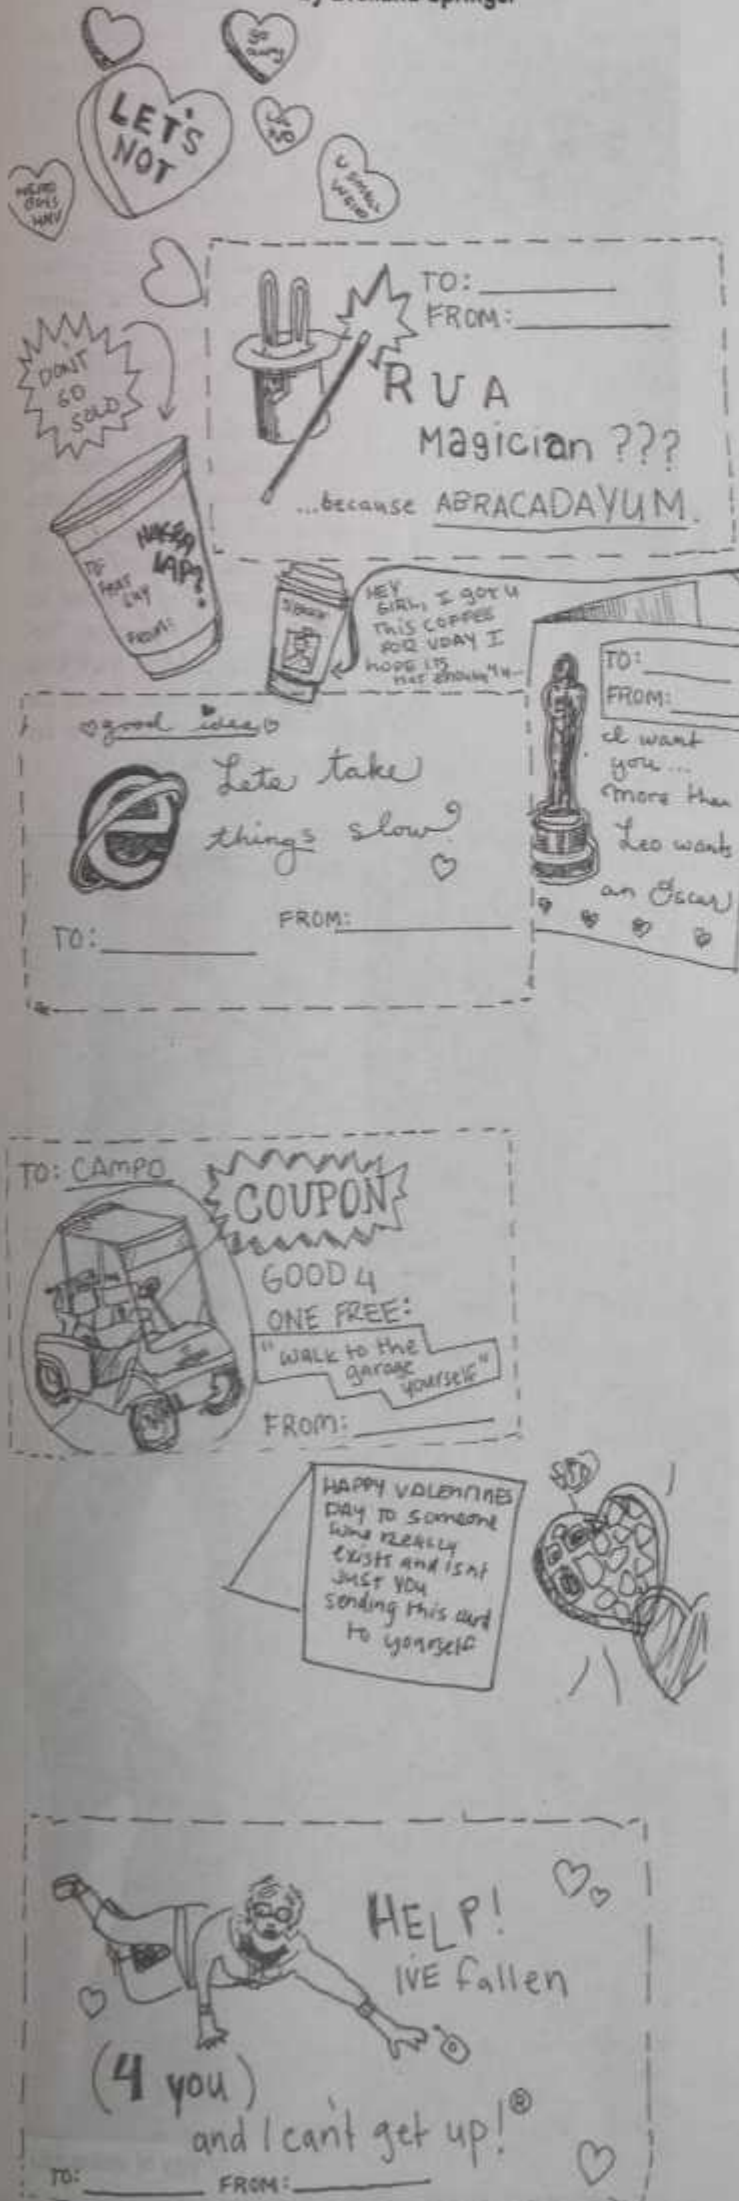 by Springer
LET'S
NOT
U SMELL
WEIRD
DON'T
GO
SOLO
TO:
FROM:
R U A
Magician ???
...because ABRACADAYUM.
TO:
FROM:
HEY
GIRL, I GOT U
THIS COFFEE
FOR VDAY I
HOPE ITS
not enough 4 u...
TO:
FROM:
I want
you...
more than
Leo wants
an Oscar
good idea
Lets take
things slow?
TO:
FROM:
TO: CAMPO
COUPON
GOOD 4
ONE FREE:
"WALK to the
garage
yourself"
FROM:
HAPPY VALENTINES
DAY TO someone
who REALLY
exists and isnt
JUST YOU
sending this card
to yourself
HELP!
IVE fallen
(4 you)
and I can't get up!®
TO:
FROM: